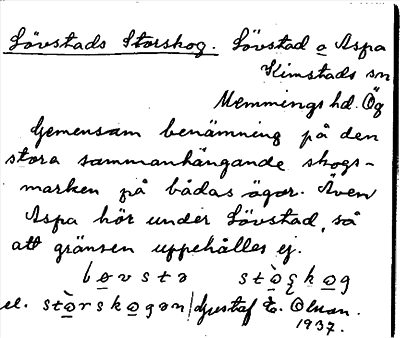 Lövstads Storskog. Lövstad o Aspa
Kimstads sn
Memmings hd. Ög
Gemensam benämning på den
stora sammanhängande skogs-
marken på bådas ägor. Även
Aspa hör under Lövstad, så
att gränsen uppehålles ej.
løvstə stò̱ʂko̱g
el. stò̱rsko̱gən / Gustaf E. Olsson.
1937.